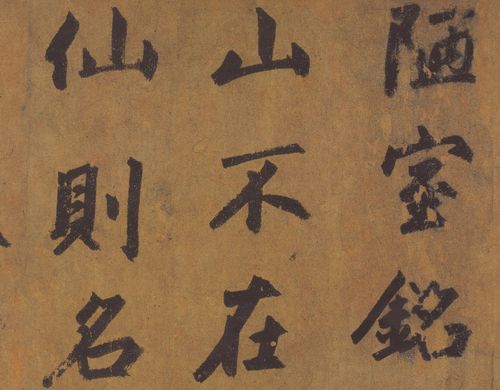 陋室銘
山不在
仙則名